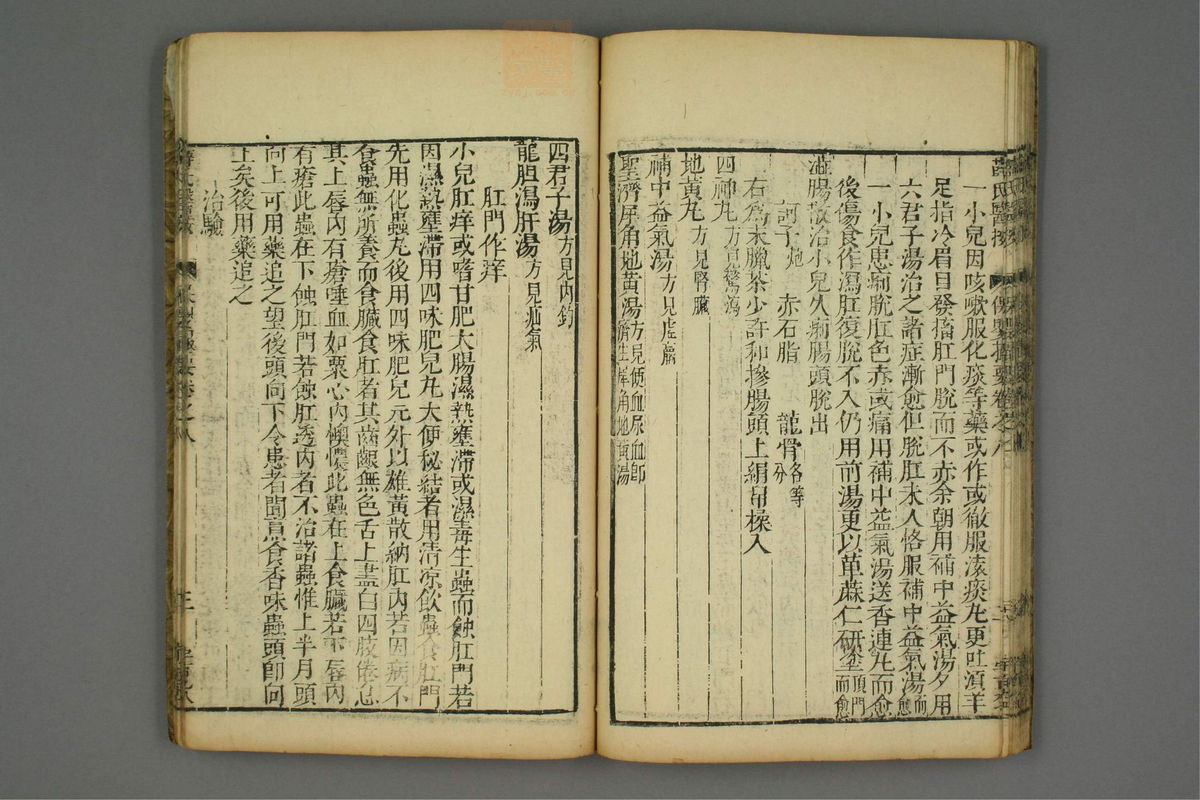 一小兒因咳嗽服化痰等藥或作或徹服滚痰丸更吐涎手
足指冷眉目發搐肛門脫而不赤余朝用補中益氣湯夕用
六君子湯治之諸症漸愈但脫肛未入恪服補中益氣湯而愈
一小兒患痢脫肛色赤或痛用補中益氣湯送香連丸而愈
後傷食作瀉肛復脫不入仍用前湯更以萆蔴仁研塗頂門而愈
澁腸散治小兒久痢腸頭脫出
訶子炮 赤石脂 龍骨各等分
右爲末臘茶少許和摻腸頭上絹帛揉入
四神丸方見驚瀉
地黃丸方見腎臟
補中益氣湯方見虚羸
聖濟犀角地黃湯方見便血尿血即濟生犀角地黃湯
薛氏醫按
保嬰撮要卷之八
四君子湯方見内釣
龍胆瀉肝湯方見疝氣
肛門作痒
小兒肛痒或嗜甘肥大腸濕熱壅滯或濕毒生蟲而蝕肛門若
因濕熱壅滯用四味肥兒丸大便秘結者用清凉飲蟲食肛門
先用化蟲丸後用四味肥兒元外以雄黃散納肛内若因病不
食蟲無所養而食臟食肛者其齒齦無色舌上盡白四肢倦怠
其上唇内有瘡唾血如粟心内懊憹此蟲在上食臟若下唇内
有瘡此蟲在下蝕肛門若蝕肛透内者不治諸蟲惟上半月頭
向上可用藥追之望後頭向下令患者聞煎食香味蟲頭即向
上矣後用藥追之
治驗